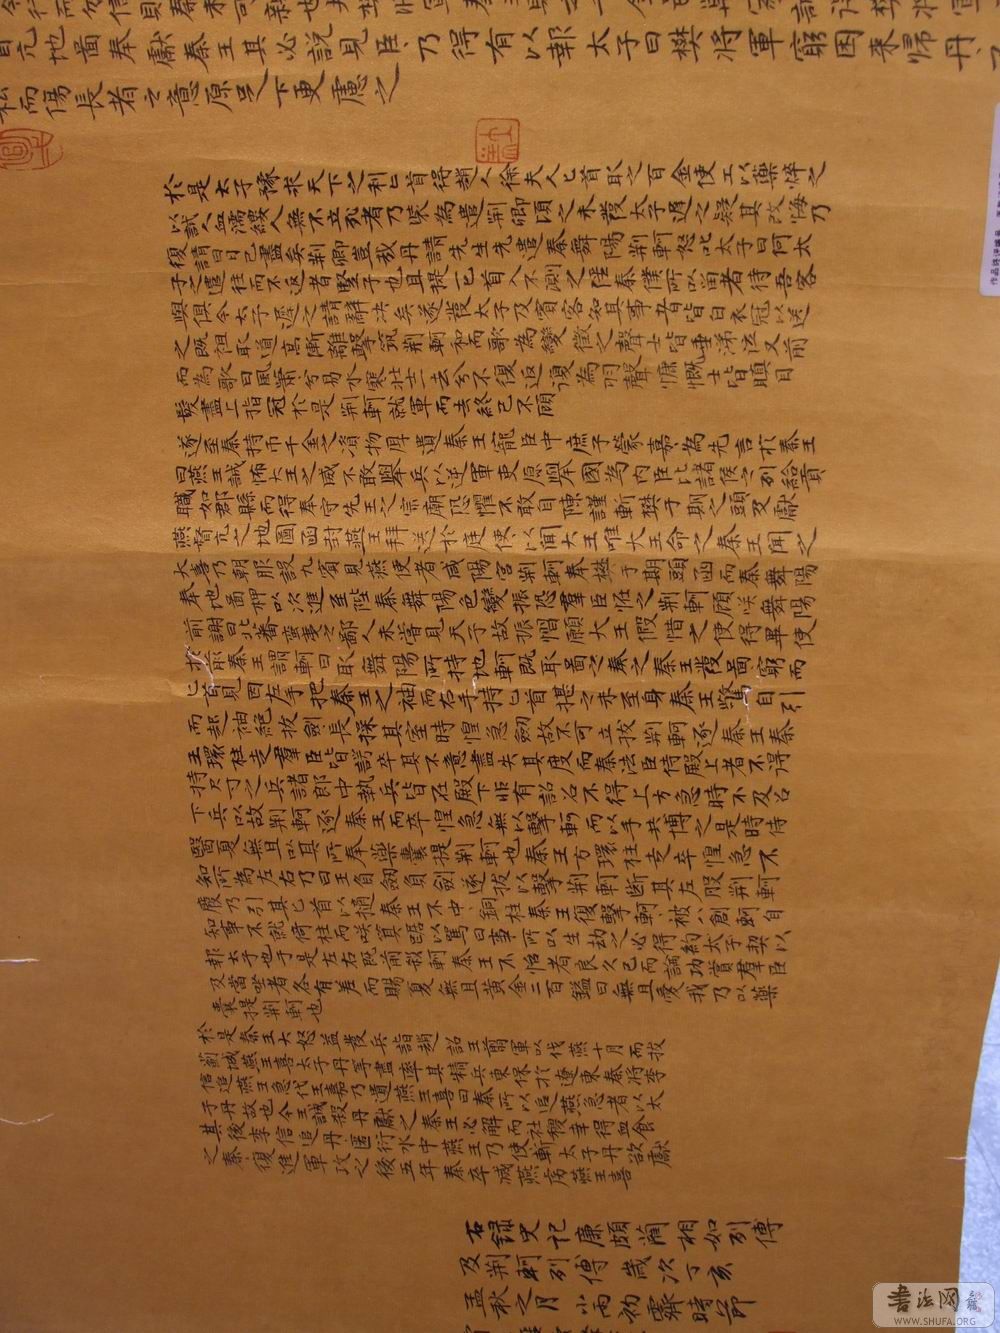 令行而勿信則秦未可親也夫樊將軍
督亢地圖奉獻秦王其必說見臣乃得有以報太子曰樊將軍窮困來歸丹
私而傷長者之意原足下更慮之
於是太子豫求天下之利匕首得趙人徐夫人匕首取之百金使工以藥焠之
以試人血濡縷人無不立死者乃裝為遣荊卿頃之未發太子遲之疑其改悔乃
復請曰日已盡矣荊卿豈哉丹請先生先遣秦舞陽荊軻怒叱太子曰何太
子之遣往而不返者豎子也且提一匕首入不測之陛秦僕所以留者待吾客
與俱今太子遲之請辭決矣遂發太子及賓客知其事者皆白衣冠以送
之既祖取道高漸離擊筑荊軻和而歌為變徵之聲士皆垂涕泣又前
而為歌曰風蕭兮易水寒壯士一去兮不復返復為羽聲慷慨士皆瞋目
髮盡上指冠於是荊軻就車而去終已不顧
遂至秦持巾千金之資物厚遺秦王寵臣中庶子蒙嘉為先言於秦王
曰燕王誠怖大王之威不敢舉兵以逆軍吏原舉國為內臣比諸侯之列給貢
職如郡縣而得奉守先王之宗廟恐懼不敢自陳謹斬樊于期之頭及獻
燕督亢之地圖函封燕王拜送於庭使以聞大王唯大王命之秦王聞之
大喜乃朝服設九賓見燕使者咸陽宮荊軻奉樊于期頭函而秦舞陽
奉地圖柙以次進至陛秦舞陽色變振恐羣臣怪之荊軻顧咲舞陽
前謝曰北番蠻夷之鄙人未嘗見天子故振慴願大王假借之使得畢使
於前秦王謂軻曰取舞陽所持地軻既取圖之秦之秦王發圖窮而
匕首見因左手把秦王之袖而右手持匕首揕之未至身秦王驚自引
而起袖絕拔劍長操其室時惶急劒故不可立拔荊軻逐秦王秦
王環柱走羣臣皆諤卒其不意盡失其度而秦法臣侍殿上者不得
持尺寸之兵諸郎中執兵皆在殿下非有詔召不得上方急時不及召
下兵以故荊軻逐秦王而卒惶急無以擊斬而以手共博之是時侍
醫夏無且以其所奉藥囊提荊軻也秦王方環柱走卒惶急不
知所為左右乃曰王負劒負劍遂拔以擊荊軻斷其左股荊軻
廢乃引其匕首以擿秦王不中銅柱秦王復擊軻被八創軻自
知事不就倚柱而咲箕踞以罵曰事所以生劫之必得約契以
報太子也于是左右既前殺軻秦王不怡者良久已而論功賞羣臣
及當坐者各有差而賜夏無且黃金二百鎰曰無且愛我乃以藥
囊提荊軻也
於是秦王大怒益發兵詣趙詔王翦軍以伐燕十月而拔
薊城燕王喜太子丹等盡率其精兵東保於遼東秦將李
信追燕王急代王嘉乃遺燕王喜曰秦所以追燕急者以太
子丹故也今王誠殺丹獻之秦王必解而社稷幸得血食
其後李信追丹匿衍水中燕王乃使斬太子丹欲獻
之秦復進軍攻之後五年秦卒滅燕虜燕王喜
右錄史記廉頗藺相如列傳
及荊軻列傳歲次丁亥
孟秋之月小雨初霽時節
書法网
WWW.SHUFA.ORG